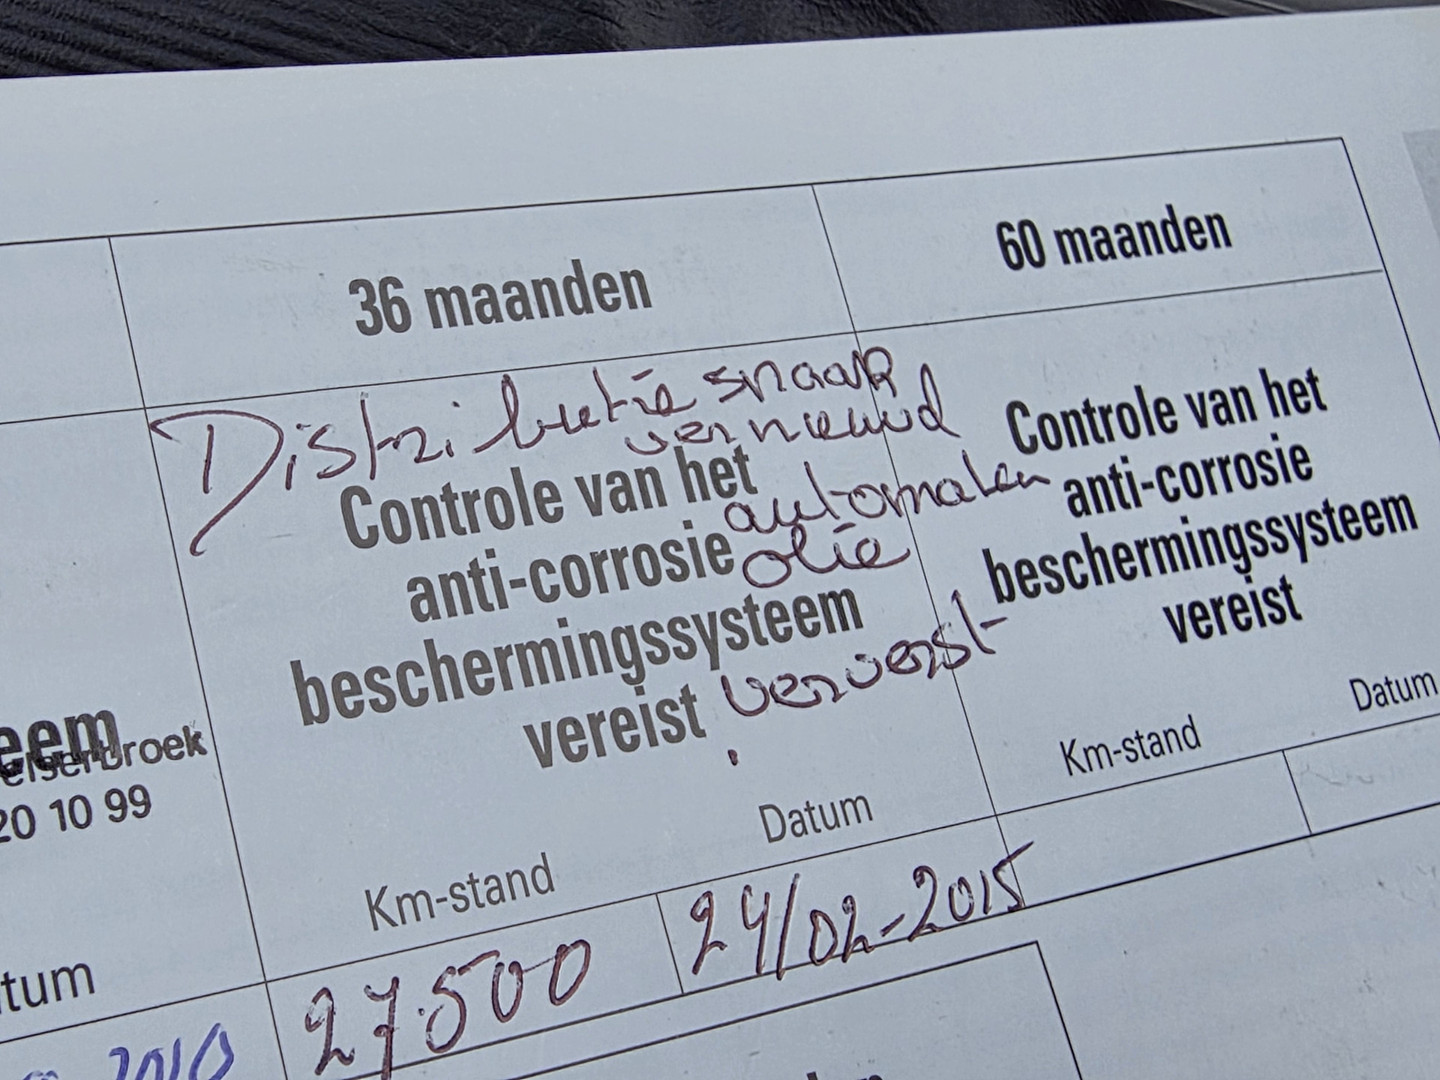 36 maanden
60 maanden
Distributie snaar
vernieuwd
Controle van het
automaten
anti-corrosie
olie
beschermingssysteem
vereist ververst
.
Km-stand
Datum
27.500
24/02-2015
Controle van het
anti-corrosie
beschermingssysteem
vereist
Km-stand
Datum
eem
eiserbroek
20 10 99
tum
2010